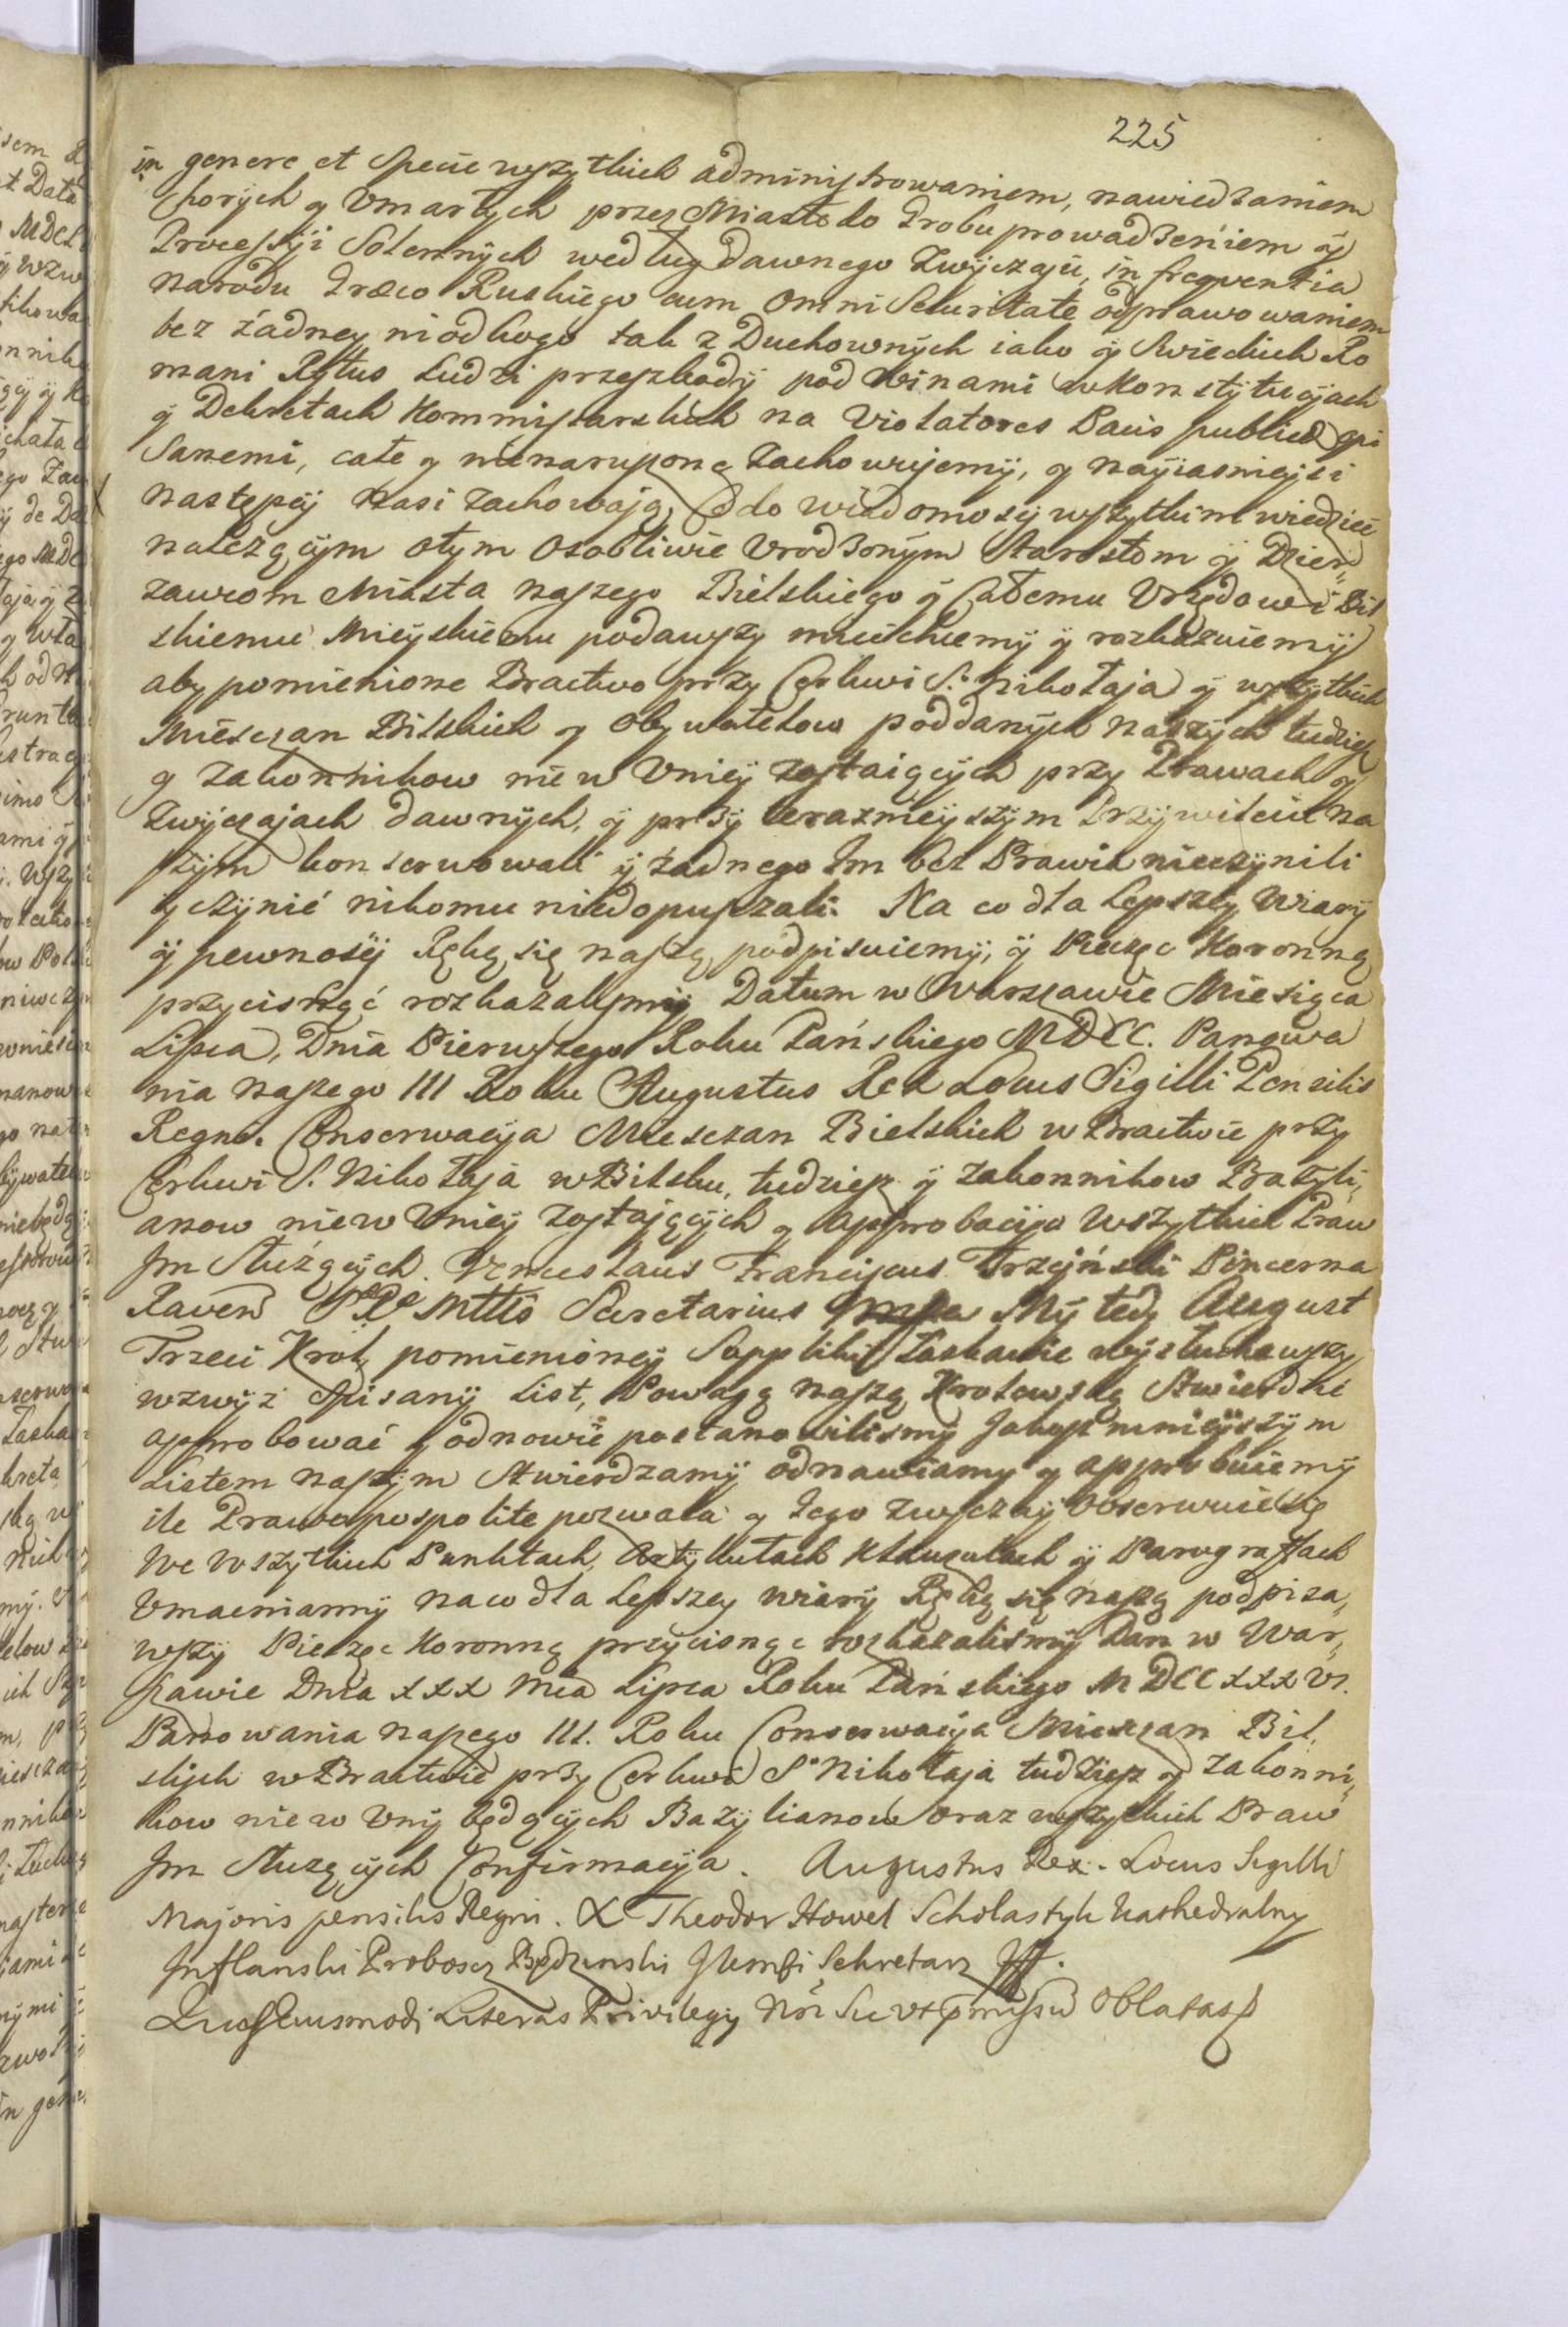 225
in genere et Specie wszytkich administrowaniem, nawiedzaniem
Chorych y Vmarłych przez Miasto do Grobu prowadzeniem ÿ
Processÿi Solennÿch według dawnego Zwÿczaju, in freqventia
Narodu Græco Ruskiego cum Omni Securitate odprawowaniem
bez źadneÿ niodkogo tak z Duchownÿch iako ÿ Swieckich Ro
mani Rÿtus Ludzi przeszkodÿ pod Winami w Konstÿtucÿach
ÿ Dekretach Kommissarskich na Violatores Pacis publicæ opi
Sanemi, całe y nienaruszone Zachowujemÿ, y naÿiasnieÿsi
Następcÿ Nasi Zachowają, Co do wiadomoscÿ wszytkim wiedziec
należącÿm otym Osobliwie Vrodzonÿm Starostom ÿ Dzier„
żawcom Miasta naszego Bielskiego ÿ Całemu Vrzędowi Bil
skiemu Mieÿskiemu podawszy mieć chcemÿ ÿ rozkazuiemÿ
aby pomienione Bractwo przy Cerkwi S. Nikołaja ÿ wszytkich
Miesczan Bilskich y Obywatelow poddanÿch naszÿch tudziesz
y Zakonnikow nie w Vnieÿ zostaiącÿch przy Prawach y
Zwÿczajach dawnÿch, ÿ przÿ terazniejszÿm Przÿwileiu na
szÿm konserwowali ÿ żadnego Im bez Prawia nieczÿnili
ÿ czÿnić nikomu niedopuszczali. Na co dla Lepszeÿ Wiarÿ
ÿ pewnoscÿ Ręką się naszą podpisuiemÿ, ÿ Pieczęc Koronną
przycisnąć rozkazalismÿ Datum w Warszawie Miesiąca
Lipca, Dnia Pierwszego Roku Pańskiego MDCC. Panowa
nia naszego III Roku Augustus Rex Locus Sigilli Pensilis
Regni. Conserwacÿa Miesczan Bielskich w Bractwie przy
Cerkwi S. Nikołaja w Bilsku, tudziesz ÿ Zakonnikow Bazÿli„
anow nie w Vnieÿ zostającÿch y approbacÿa Wszytkich Praw
Im Służącÿch. Venceslaus Francÿcus Trzcÿński Pincerna
Raven S R Mttis Secretarius mpa Mÿ tedy August
Trzeci Krol pomienioneÿ Suppliki Łaskawie wÿsłuchawszy
wzwÿż Spisanÿ List, Powagą naszą Krolewską Stwierdzić
approbować y odnowić postanowilismÿ Jakosz ninieÿszÿm
Listem naszÿm Stwierdzamÿ odnawiamy y approbuiemÿ
ile Prawo pospolite pozwala y Iego zwyczaÿ Obserwuie się
We wszytkich Punktach, Artÿkułach Klauzulach ÿ Paragraffach
Vmacniamÿ naco dla Lepszey wiarÿ Ręką się naszą podpisa„
wszÿ Pieczęc Koronną przycisnąc rozkazalismÿ Dan w War„
szawie Dnia XXX Mca Lipca Roku Pańskiego MDCCXXXVI.
Panowania naszego III. Roku Conserwacÿa Miesczan Bil„
skich w Bractwie przÿ Cerkwi S. Nikołaja tudziesz y Zakonni„
kow nie w Vnÿ będącÿch Bazÿlianow oraz wszytkich Praw
Im Służącÿch Confirmacÿa. Augustus Rex. Locus Sigilli
Majoris pensilis Regni. X Theodor Howel Scholastyk Kathedralny
Inflanski Probosc Będzinski JKmsci Sekretarz
Quas Eiusmodi Literas Privilegij Nri Sic vt præmissu Oblatas